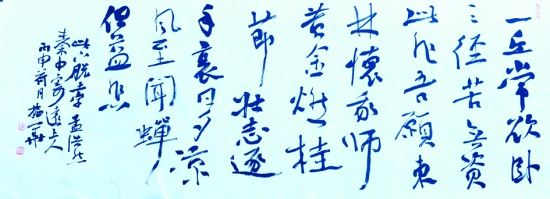 一丘常欲卧
三径苦无资
非吾愿東
林懷我师
黄金燃桂
壮志逐
年衰日夕凉
风至闻蝉
但益悲
孟浩然
秦中寄远上人
丙申荷月